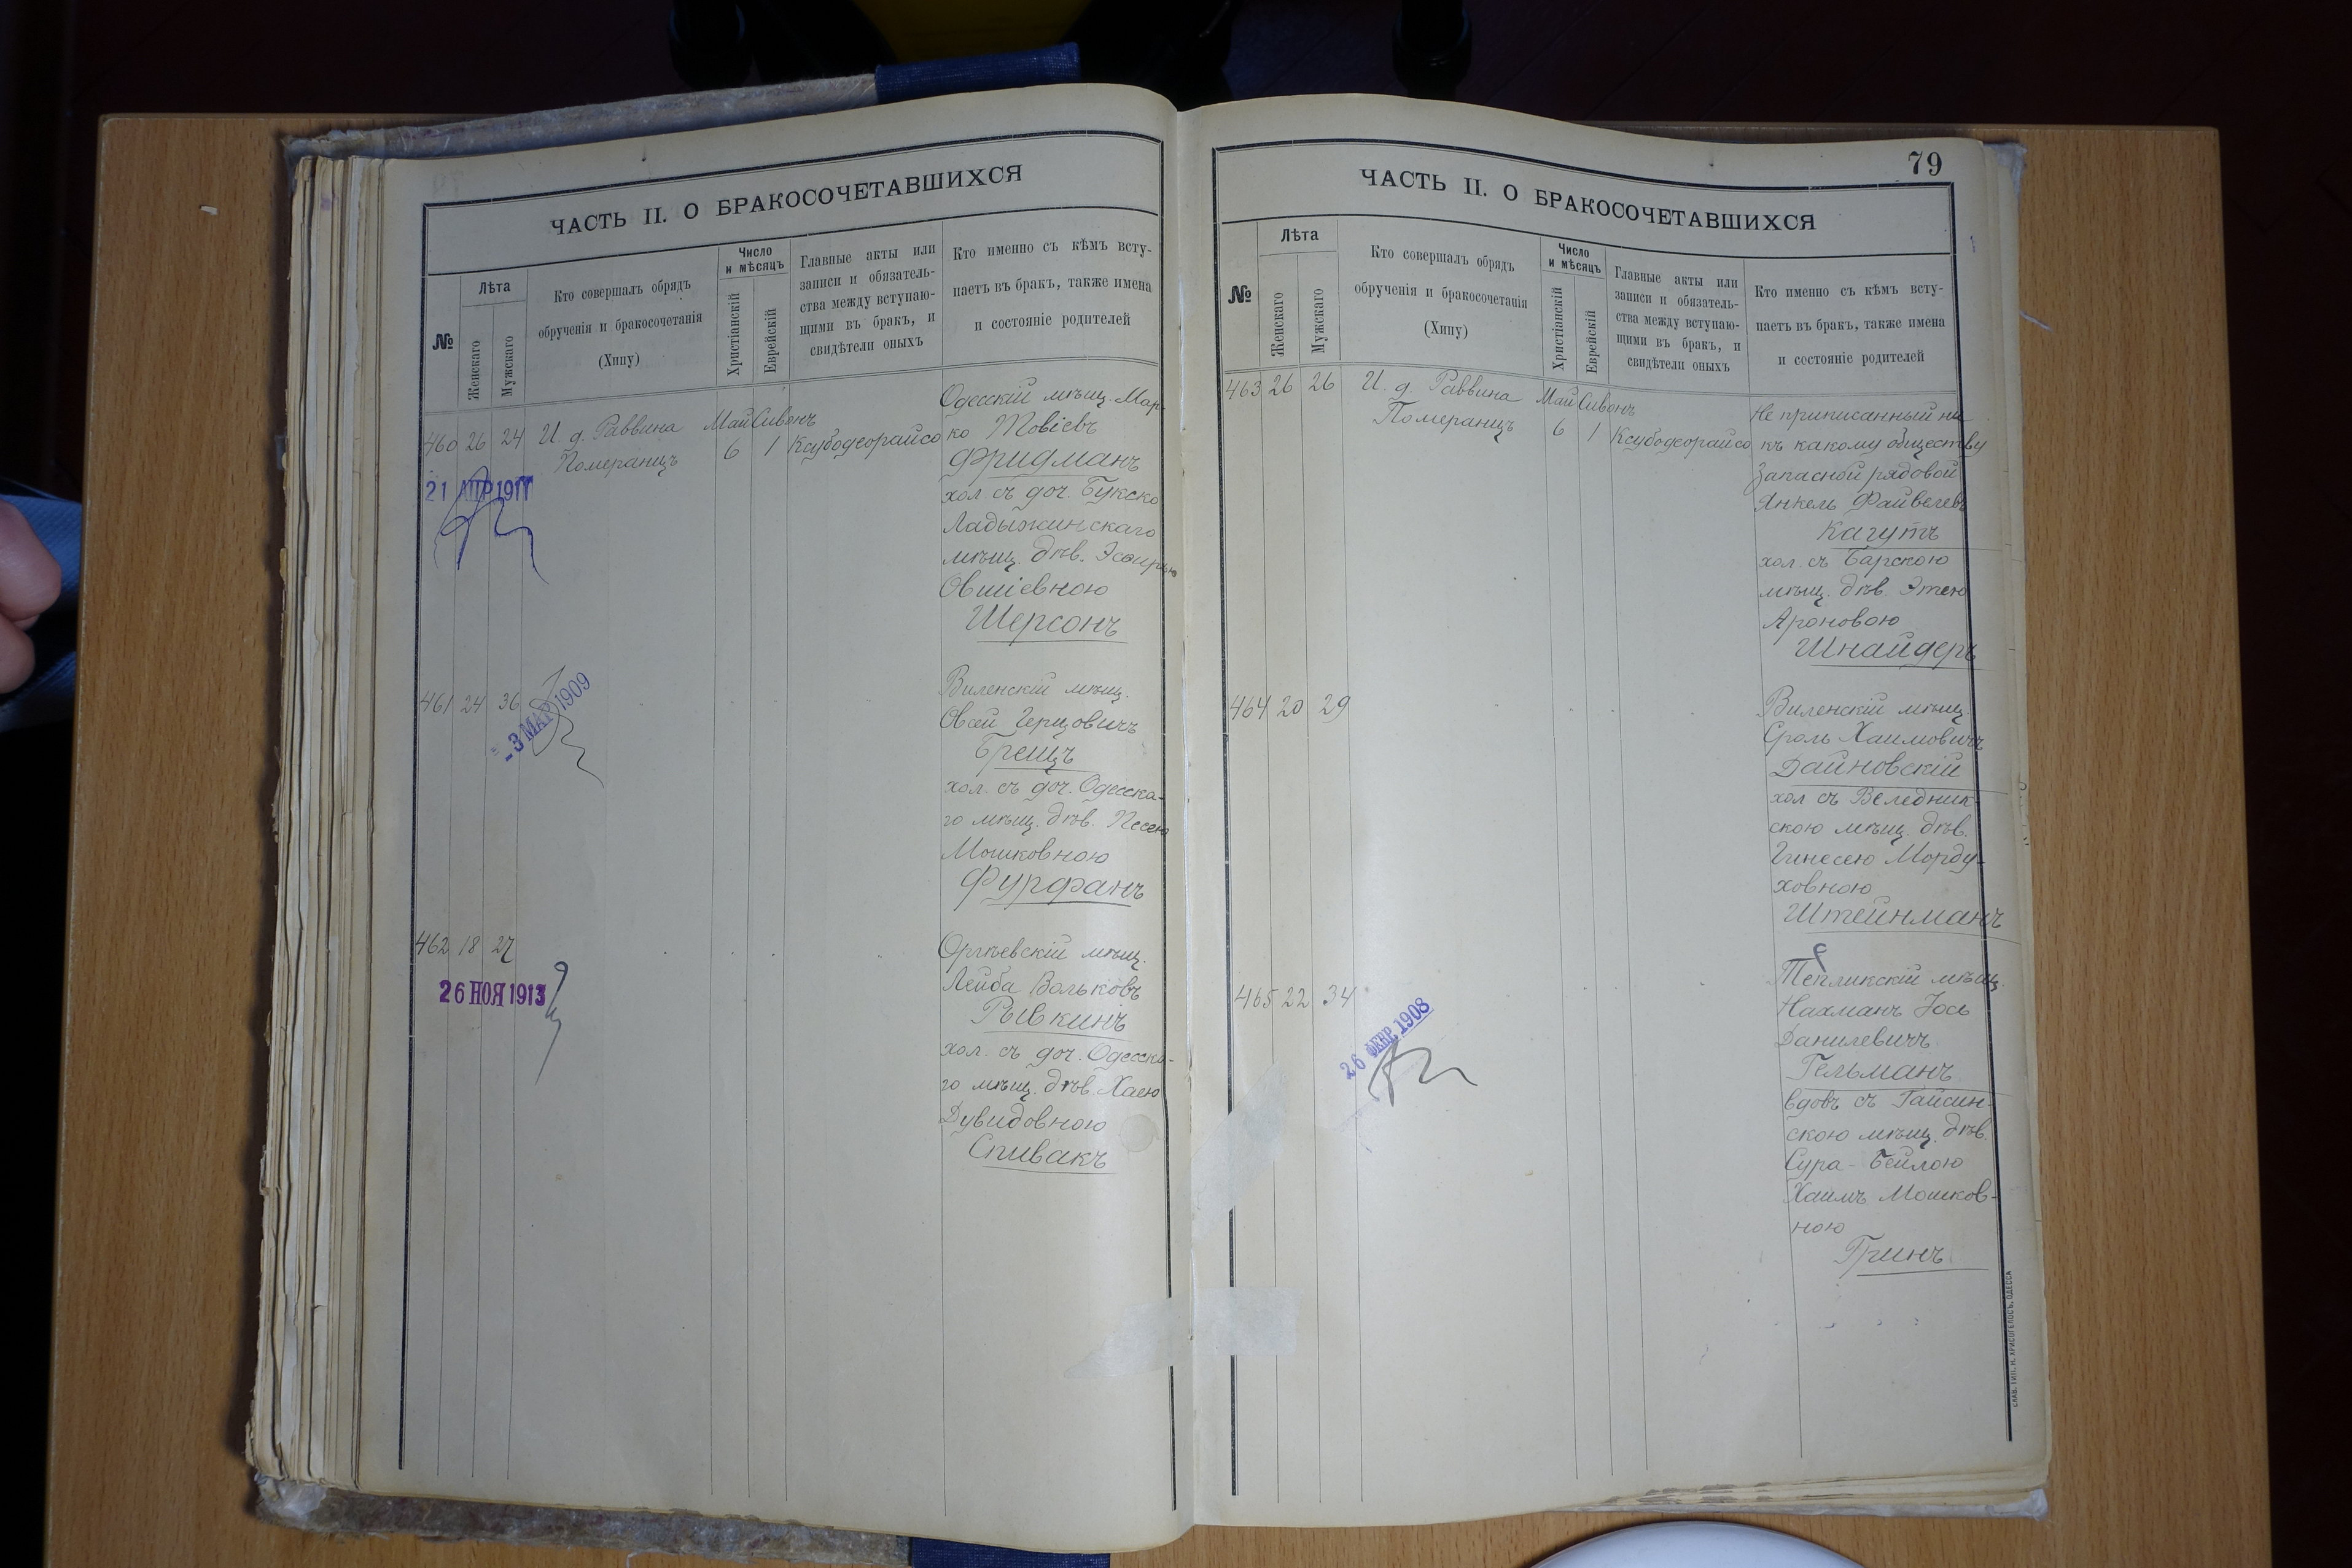 ЧАСТЬ II. О БРАКОСОЧЕТАВШИХСЯ
№
Лѣта
Женскаго
Мужскаго
Кто совершалъ обрядъ
обрученія и бракосочетанія
(Хипу)
Число
и мѣсяцъ
Христіанскій
Еврейскій
Главные акты или
записи и обязатель-
ства между вступаю-
щими въ бракъ, и
свидѣтели оныхъ
Кто именно съ кѣмъ всту-
паетъ въ бракъ, также имена
и состояніе родителей
460 26 24 И. д. Раввина
Померанцъ
Май Сивонъ
6 1 Ксубодеорайсо
21 АПР 1911
Одесскій мѣщ. Мар-
ко Товіевъ
Фридманъ
хол съ доч. Букско
Ладыжинскаго
мѣщ. дѣв. Эсѳирью
Овшіевною
Шерсонъ
461 24 36
- 3 МАР 1909
Виленскій мѣщ.
Овсей Герцовичъ
Брещъ
хол. съ доч. Одесска-
го мѣщ. дѣв. Песею
Мошковною
Фурфанъ
462 18 27
26 НОЯ 1913
Оргѣевскій мѣщ.
Лейба Вольковъ
Рывкинъ
хол. съ доч. Одесска-
го мѣщ. дѣв. Хаею
Дувидовною
Спивакъ
79
ЧАСТЬ II. О БРАКОСОЧЕТАВШИХСЯ
№
Лѣта
Женскаго
Мужскаго
Кто совершалъ обрядъ
обрученія и бракосочетанія
(Хипу)
Число
и мѣсяцъ
Христіанскій
Еврейскій
Главные акты или
записи и обязатель-
ства между вступаю-
щими въ бракъ, и
свидѣтели оныхъ
Кто именно съ кѣмъ всту-
паетъ въ бракъ, также имена
и состояніе родителей
463 26 26 И. д. Раввина
Померанцъ
Май Сивонъ
6 1 Ксубодеорайсо
Не приписанный ни
къ какому обществу
Запасной рядовой
Янкель Файвелевъ
Кагутъ
хол. съ Барскою
мѣщ. дѣв. Этею
Ароновою
Шнайдеръ
464 20 29
Виленскій мѣщ.
Сроль Хаимовичъ
Дайновскій
хол съ Веледник-
скою мѣщ. дѣв.
Гинесею Морду-
ховною
Штейнманъ
465 22 34
26 ФЕВР 1908
Тепликскій мѣщ.
Нахманъ Іось
Данилевичъ
Гельманъ
вдовъ съ Гайсин-
скою мѣщ. дѣв.
Сура-Бейлою
Хаимъ Мошков-
ною
Гринъ
СЛАВ. ТИП. Н. ХРИСОГЕЛОСЪ, ОДЕССА